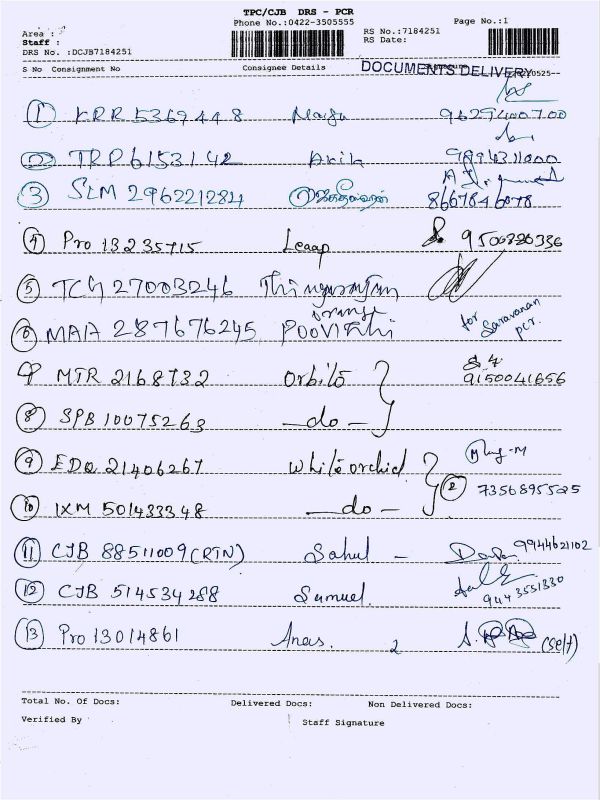 TPC/CJB DRS - PCR
Phone No.:0422-3505555 Page No.:1
Area :
Staff :
DRS No. :DCJB7184251
RS No.:7184251
RS Date:
S No Consignment No Consignee Details DOCUMENTS DELIVERY
1 KRR 5369448
2 TRP 6153142 9994311000
3 SLM 2962212824 8667846078
4 Pro 13235715 Leaap 9500320336
5 TCG 27003246
orange
6 MAA 287676245 POOVIZHI for Saravanan pcr.
7 MTR 2168732 Orbito 9150041656
8 SPB 10075263 -do-
9 EDQ 21406267 White orchid
10 IXM 501433348 -do- 2 7356895525
11 CJB 88511009 (RTN) Sahul - 9944621102
12 CJB 514534288 Samuel. 9443551330
13 Pro 13014861 Anas. 2 (self)
Total No. Of Docs: Delivered Docs: Non Delivered Docs:
Verified By Staff Signature